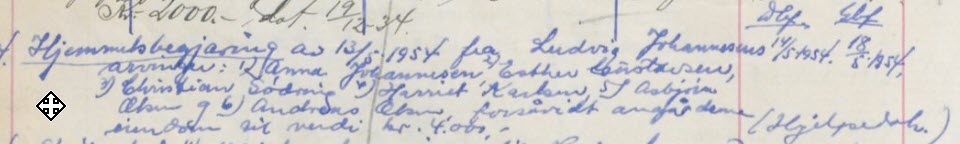 Kr. 2000.- Dat. 19/12-34.
Dbf. Gbf
Hjemmelsbegjæring av 13/5-1954 fra Ludvig Johannesens 14/5 1954. 18/5 1954.
arvinger: 1) Anna Johannesen 2) Esther Gustavsen,
3) Christian Södring 4) Harriet Karlsen 5) Asbjörn
Olsen og 6) Andreas Olsen, forsåvidt angår denne
eiendom til verdi kr. 4.000,- (Hjelpedok.)